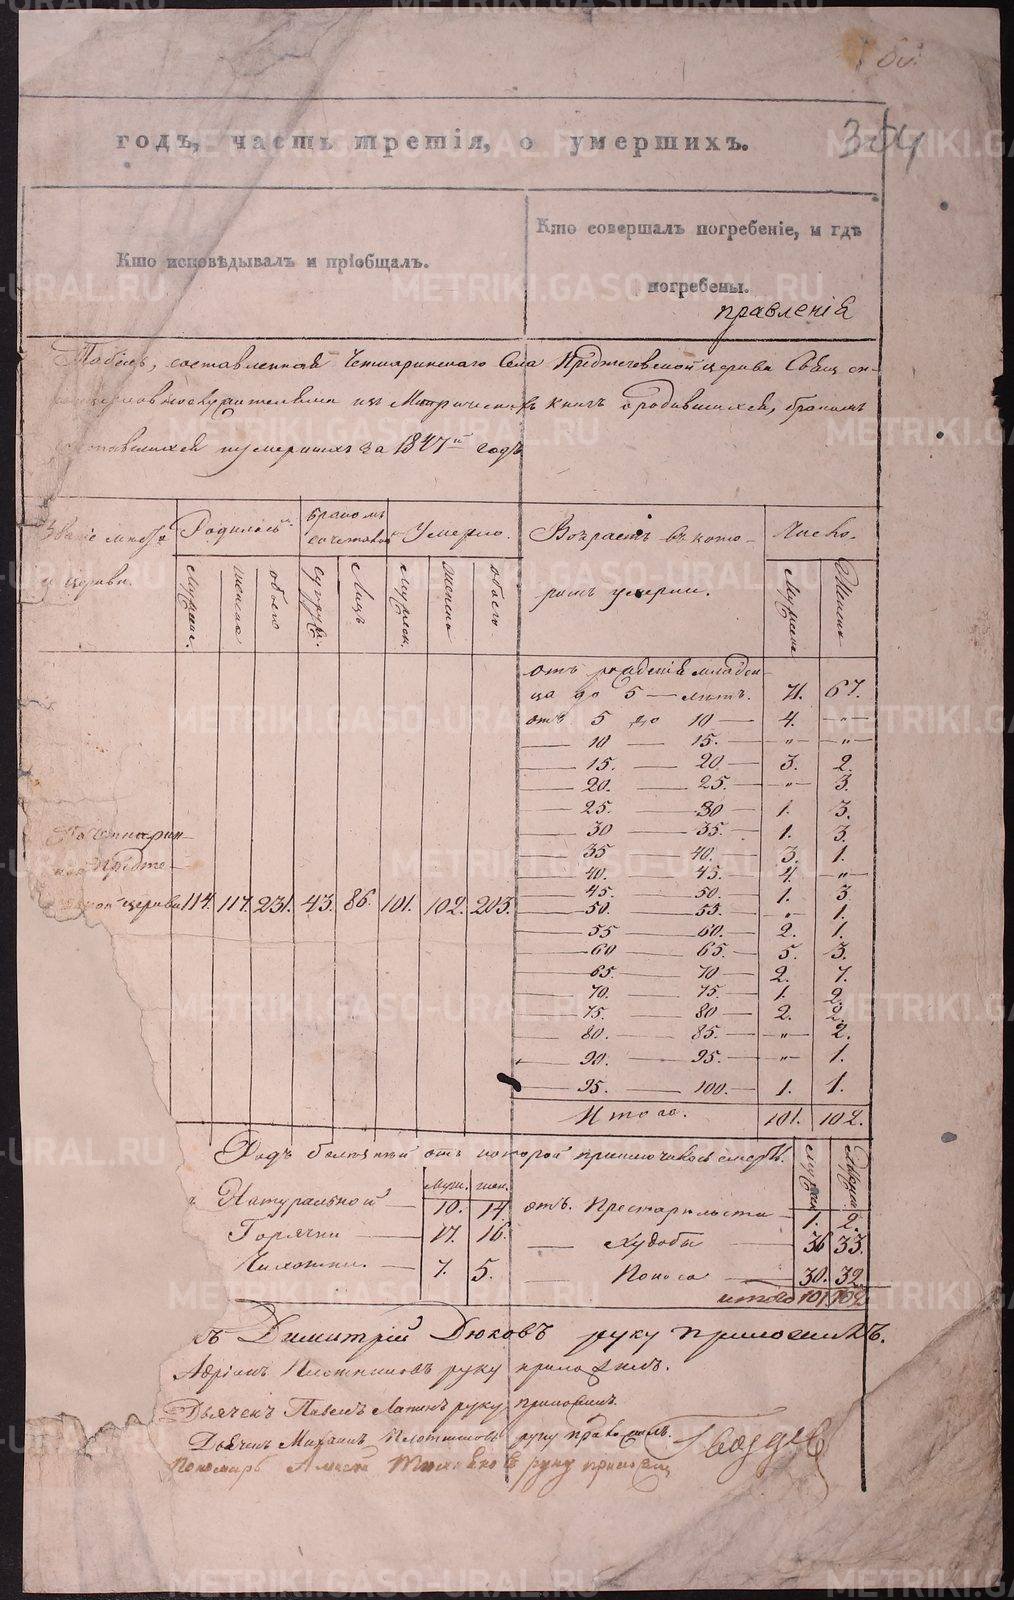 354
годъ, часть третія, о умершихъ.
Кто исповѣдывалъ и пріобщалъ.
Кто совершалъ погребеніе, и гдѣ
погребены.
правленія
Табель, составленной Села Предтечевской церкви Свящ
изъ Метрическихъ книгъ о родившихся, бракомъ
и умершихъ за 1847й годъ
Званіе мѣста
и церкви.
Родилось
Мужес.
женска
обоего
бракомъ
сочетавш
супруж.
Лицъ
Умерло.
мужеск.
женска
обоего
Возрастъ въ кото-
ромъ умерли.
Число.
Мужска
Женска
отъ рожденія младен-
ца до 5 — лѣтъ. 71. 67.
отъ 5 до 10 — 4. — „ —
— 10 — 15. — „ — — „ —
— 15. — 20 — 3. 2.
— 20. — 25. — „ 3.
— 25. — 30 — 1. 3.
— 30 — 35. — 1. 3.
— 35 — 40. — 3. 1.
— 40. — 45. — 4. — „ —
— 45. — 50. — 1. 3
— 50. — 55. — „ 1.
— 55 — 60. — 2. 1.
— 60 — 65. — 5. 3.
— 65. — 70 — 2. 7.
— 70. — 75. — 1. 2.
— 75. — 80 — 2. 2.
— 80. — 85. — „ — 2.
— 90. — 95. — „ — 1.
— 95. — 100. — 1. 1.
Итого. 101. 102.
Предте-
церкви 114. 117. 231. 43. 86. 101. 102. 203.
Родъ болѣзней отъ которой приключилось смерть.
Муж. жен.
Мужск
Женск
Натуральной — 10. 14. отъ. Престарѣлости — 1. 2.
Горячки — 17. 16. — Худобы — 36 33.
Чахотки. — 7. 5. — Поноса — 30. 32.
итого 101. 102
Димитрій Дюковъ руку приложилъ.
Адріанъ Плотниковъ руку приложилъ.
Дьячекъ Павелъ Лапинъ руку приложилъ.
Дьячекъ Михаилъ Плотниковъ руку приложилъ.
Пономарь руку приложилъ
Гвоздевъ
METRIKI.GASO-URAL.RU